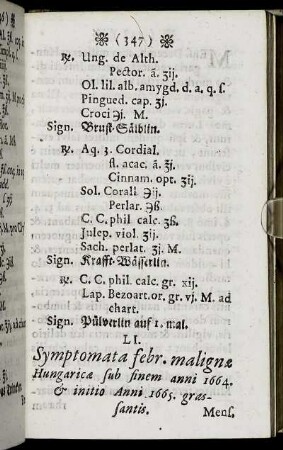 ❀ (347) ❀
℞. Ung. de Alth.
Pector. ā. ʒij.
Ol. lil. alb. amygd. d. a. q. ſ.
Pingued. cap. ʒj.
Croci ℈j. M.
Sign. Bruſt-Sälblin.
℞. Aq. 3. Cordial.
fl. acac. ā. ℥j.
Cinnam. opt. ʒij.
Sol. Corall ℈ij
Perlar. ℈ß.
C. C. phil calc. ʒß.
Julep. viol. ℥ij.
Sach. perlat. ʒj. M.
Sign. Krafft-Wäſſerlin.
℞. C. C. phil. calc. gr. xij.
Lap. Bezoart. or. gr. vj. M. ad
chart.
Sign. Pülverlin auf 1. mal.
LI.
Symptomata febr. malignæ
Hungaricæ ſub finem anni 1664.
& initio Anni 1665. graſ-
ſantis.
Menſ.